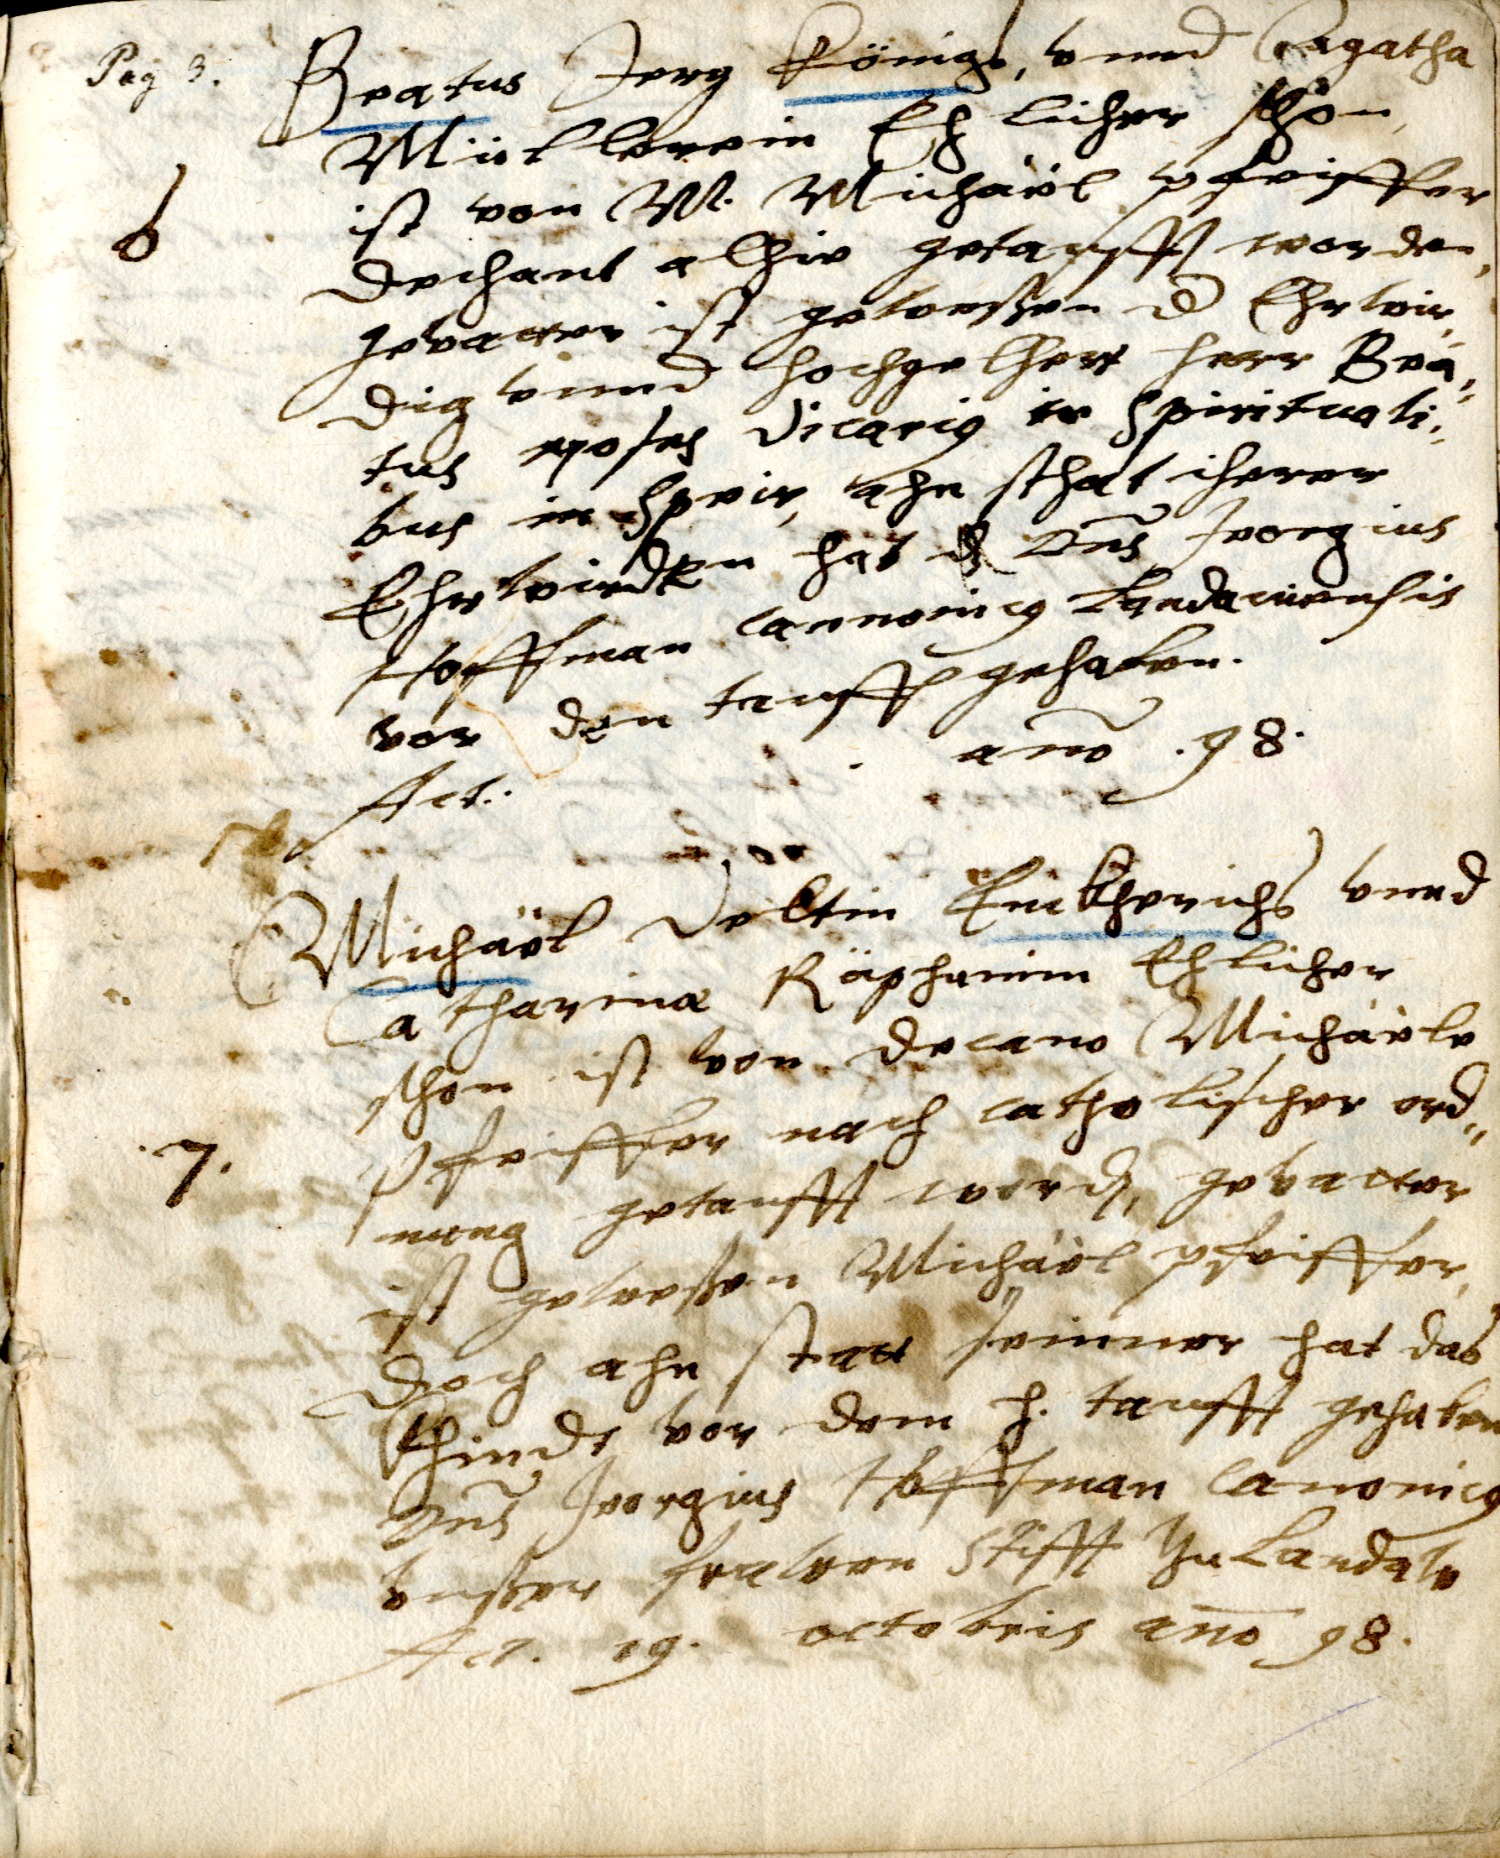 Pag 3.
Beatus Jerg Königs, vnnd Agatha
Müllerein Ehlicher Shon,
6
ist von M. Michäel Pfeiffer
dechant alhie getaufft worden,
gevatter ist geweßen d Ehrwir,,
dig vnnd hochgelhert herr Bea,,
tus Moses Vicarig in Spirituali,,
bus in Speir, ahn sthat iherer
Ehrwirdten hat dz Dns Jeorgius
Hoffman Cannonicg Landauiensis
vor den tauff gehalten.
Act. . anō .98.
Michäel Veltin Enckherichs vnnd
Catharina Räphanim Ehlicher
shon ist von decano Michäele
Pfeiffer nach catholischer ord,,
.7.
nung getaufft word, gevatter
ist geweßen Michäel Pfeiffer,
doch ahn statt seinner hat das
Khindt vor dem h. tauff gehalten
Dns Jeorgius Hoffman Canonicg
vnßer frawen Stifft zu Landaw
Act. 19. octobris anō 98.